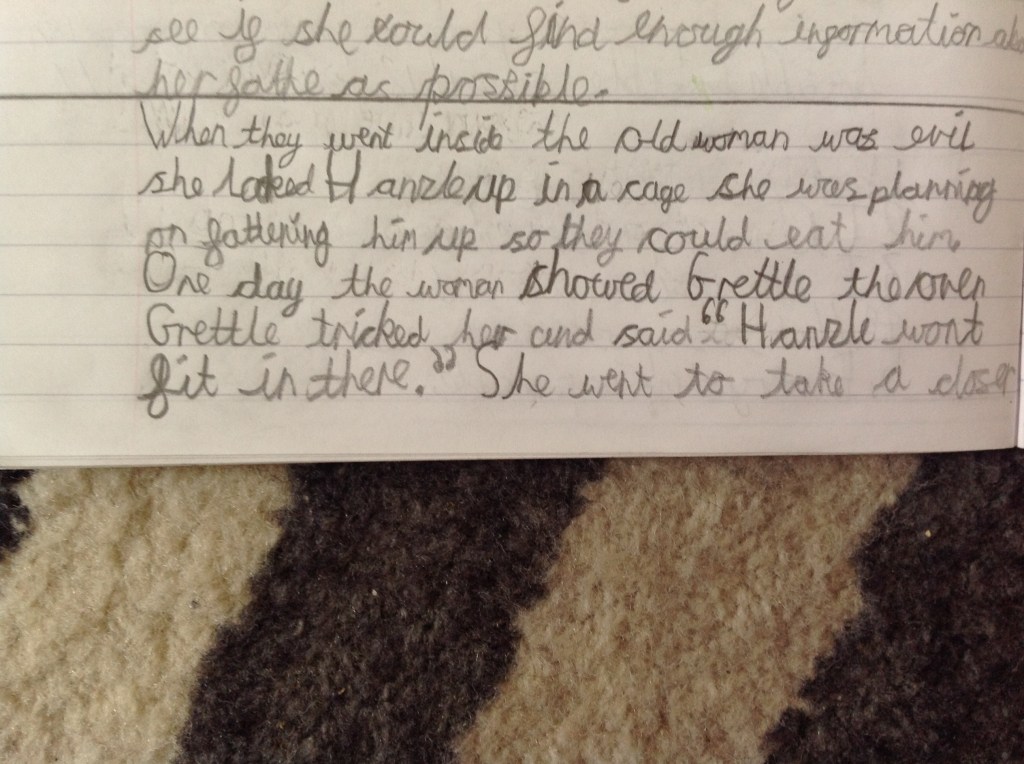 see if she could find enough information
her fathe as possible.
When they went inside the old woman was evil
she locked Hanzle up in a cage she was planning
on fattening him up so they could eat him.
One day the woman showed Grettle the oven
Grettle tricked her and said “Hanzle wont
fit in there.” She went to take a closer